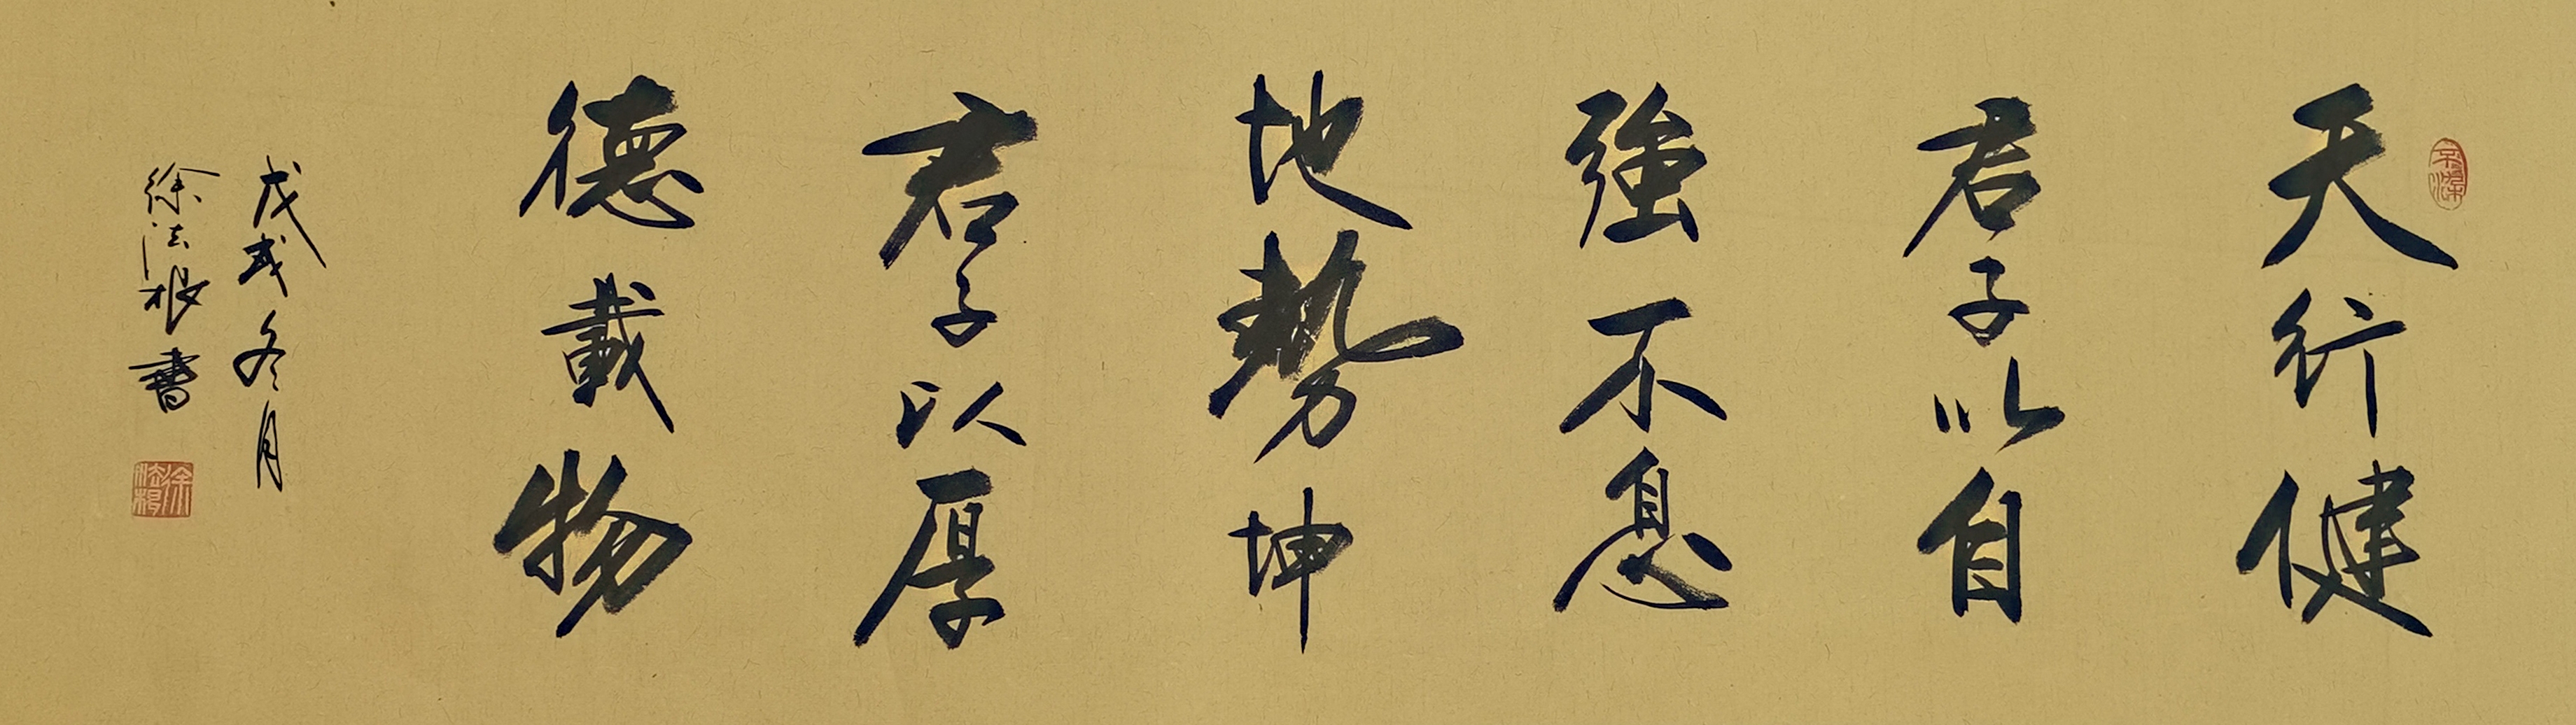 天行健
君子以自
強不息
地勢坤
君子以厚
德載物
戊戌冬月
徐法根書